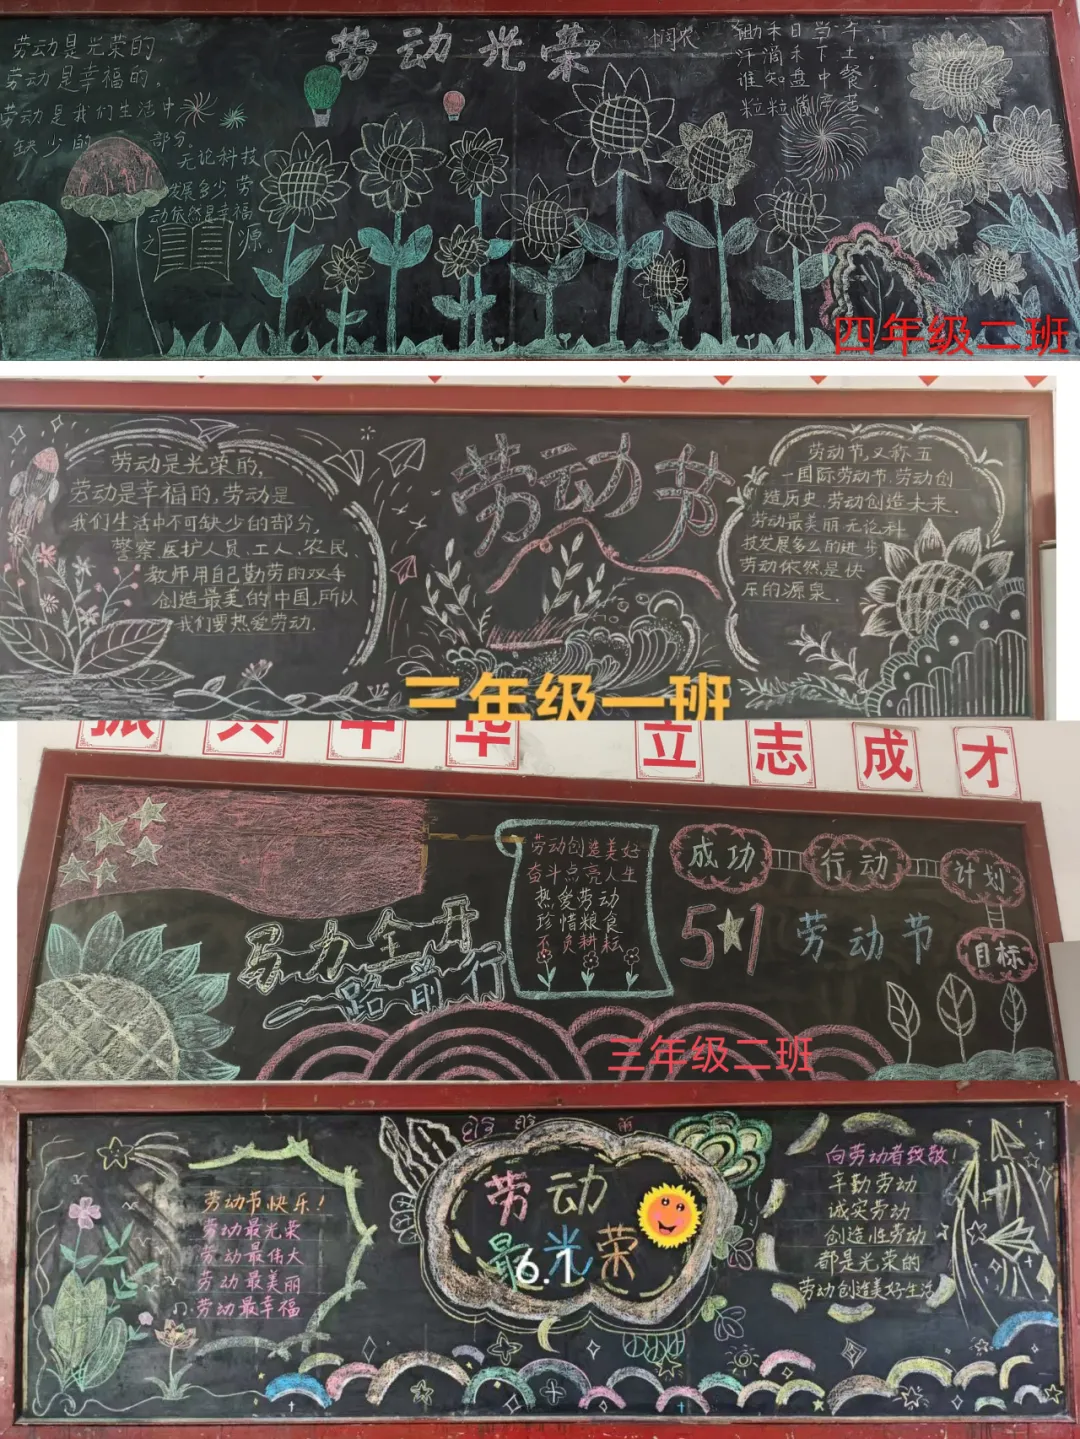 劳动是光荣的,
劳动是幸福的。
劳动是我们生活中
缺少的 部分。
无论科技
发展多少劳
动依然是幸福
之 源。
劳动光荣
悯农
锄禾日当午,
汗滴禾下土。
谁知盘中餐
粒粒
四年级二班
劳动是光荣的,
劳动是幸福的,劳动是
我们生活中不可缺少的部分,
警察、医护人员、工人、农民、
教师用自己勤劳的双手
创造最美的中国,所以
我们要热爱劳动.
劳动节
劳动节,又称五
一国际劳动节.劳动创
造历史.劳动创造未来.
劳动最美丽无论科
技发展多么的进步
劳动依然是快
乐的源泉.
三年级一班
振兴中华 立志成才
马力全开
一路前行
劳动创造美好
奋斗点亮人生
热爱劳动
珍惜粮食
不负耕耘
成功 行动 计划
目标
5★1 劳动节
三年级二班
劳动节快乐!
劳动最光荣
劳动最伟大
劳动最美丽
劳动最幸福
劳动
最光荣
6.1
向劳动者致敬!
辛勤劳动
诚实劳动
创造性劳动
都是光荣的
劳动创造美好生活